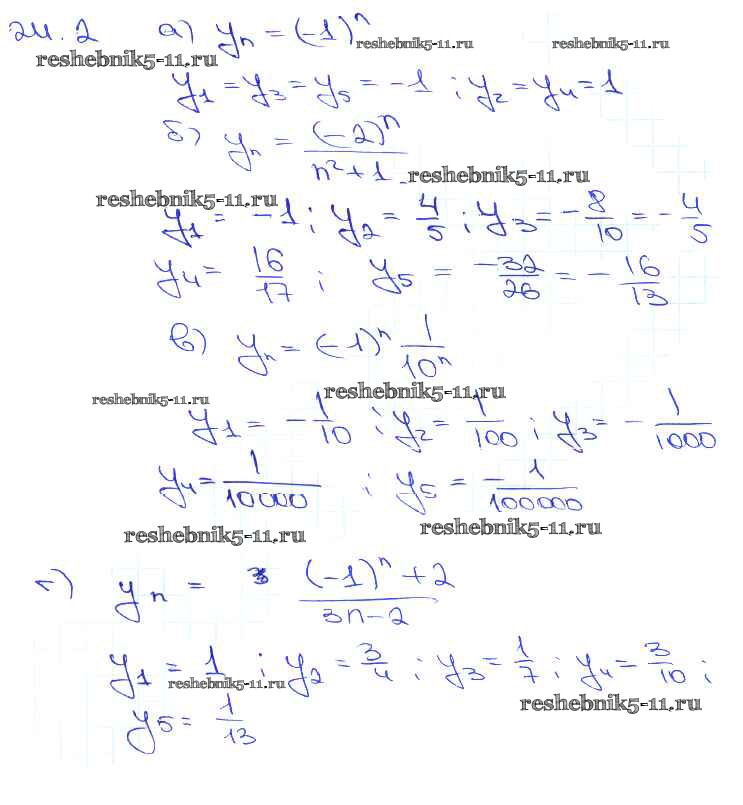 24.2 а) yₙ = (-1)ⁿ
reshebnik5-11.ru reshebnik5-11.ru reshebnik5-11.ru
y₁ = y₃ = y₅ = -1 ; y₂ = y₄ = 1
б) yₙ = (-2)ⁿ / (n² + 1)
reshebnik5-11.ru
reshebnik5-11.ru
y₁ = -1 ; y₂ = 4/5 ; y₃ = -8/10 = -4/5
y₄ = 16/17 ; y₅ = -32/26 = -16/13
в) yₙ = (-1)ⁿ 1/10ⁿ
reshebnik5-11.ru reshebnik5-11.ru
y₁ = -1/10 ; y₂ = 1/100 ; y₃ = -1/1000
y₄ = 1/10000 ; y₅ = -1/100000
reshebnik5-11.ru reshebnik5-11.ru
г) yₙ = ((-1)ⁿ + 2) / (3n-2)
y₁ = 1 ; y₂ = 3/4 ; y₃ = 1/7 ; y₄ = 3/10 ;
reshebnik5-11.ru reshebnik5-11.ru
y₅ = 1/13